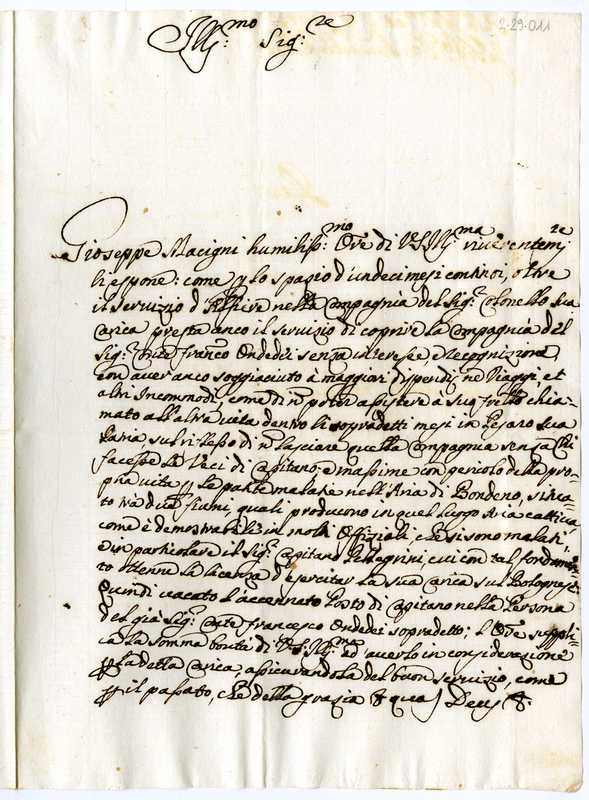 2-29-011
Ill:mo Sig:re
Gioseppe Macigni humiliss:mo Ore di VS Ill:ma riverentem:te
li espone: come p lo spazio d'undeci mesi continoi, oltre
il servizio d'Alfiere nella Compagnia del Sig:r Colonello sua
Carica presta anco il servizio di coprire la Compagnia del
Sig:r Conte Franco Ondedei senza interesse e Recognizione,
con aver anco soggiaciuto à maggiori dispendi, ne Viaggi, et
altri Incommodi, come di n poter assistere à suo frello chia=
mato all'altra vita dentro li sopradetti mesi in Pesaro sua
Patria, sul riflesso di n lasciare quella Compagnia senza Chi
facesse le Veci di Capitano, e massime con pericolo della pro=
pria vita p le passate malatie nell'Aria di Bondeno, situa=
to trà due fiumi, quali producono in quel luogo Aria cattiva,
come è demostrabile in molti Offiziali, che si sono malati,
e in particolare il Sig:r Capitano Pellegrini, cui con tal fondamen=
to ottenne la licenza d'esercitar la sua Carica sul Bolognese
Quindi vacato l'accennato Posto di Capitano nella Persona
del già Sig:r Conte Francesco Ondedei sopradetto; l'Ore suppli=
ca la somma bontà di V.S. Ill:ma ad averlo in considerazione
p la detta Carica, assicurandola del buon servizio, come
p il passato, che della grazia & qua Deus &.